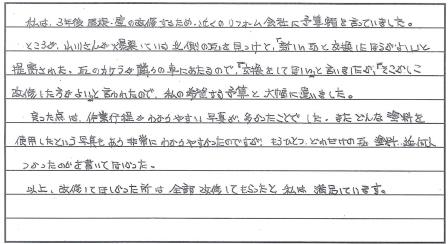 私は、3年後 屋根・壁の改修するため、近くのリフォーム会社に予算額を言っていました。
ところが、小川さんが 提案している 北側の瓦を見つけて、「新しい瓦と交換したほうがよい」と
提案された。瓦のカケラが隣りの車にあたるので、「交換をしてほしい」と言いましたが、「そこかしこ
改修した方がよい」と言われたので、私の希望する予算と大幅に違いました。
良った点は、作業行程がわかりやすい写真が多かったことでした。またどんな塗料を
使用したという写真もあり非常にわかりやすかったのですが、もうひとつ、どれだけの瓦 塗料
つかったのかを書いてほしかった。
以上、改修してほしかった所は全部改修してもらったと私は満足しています。